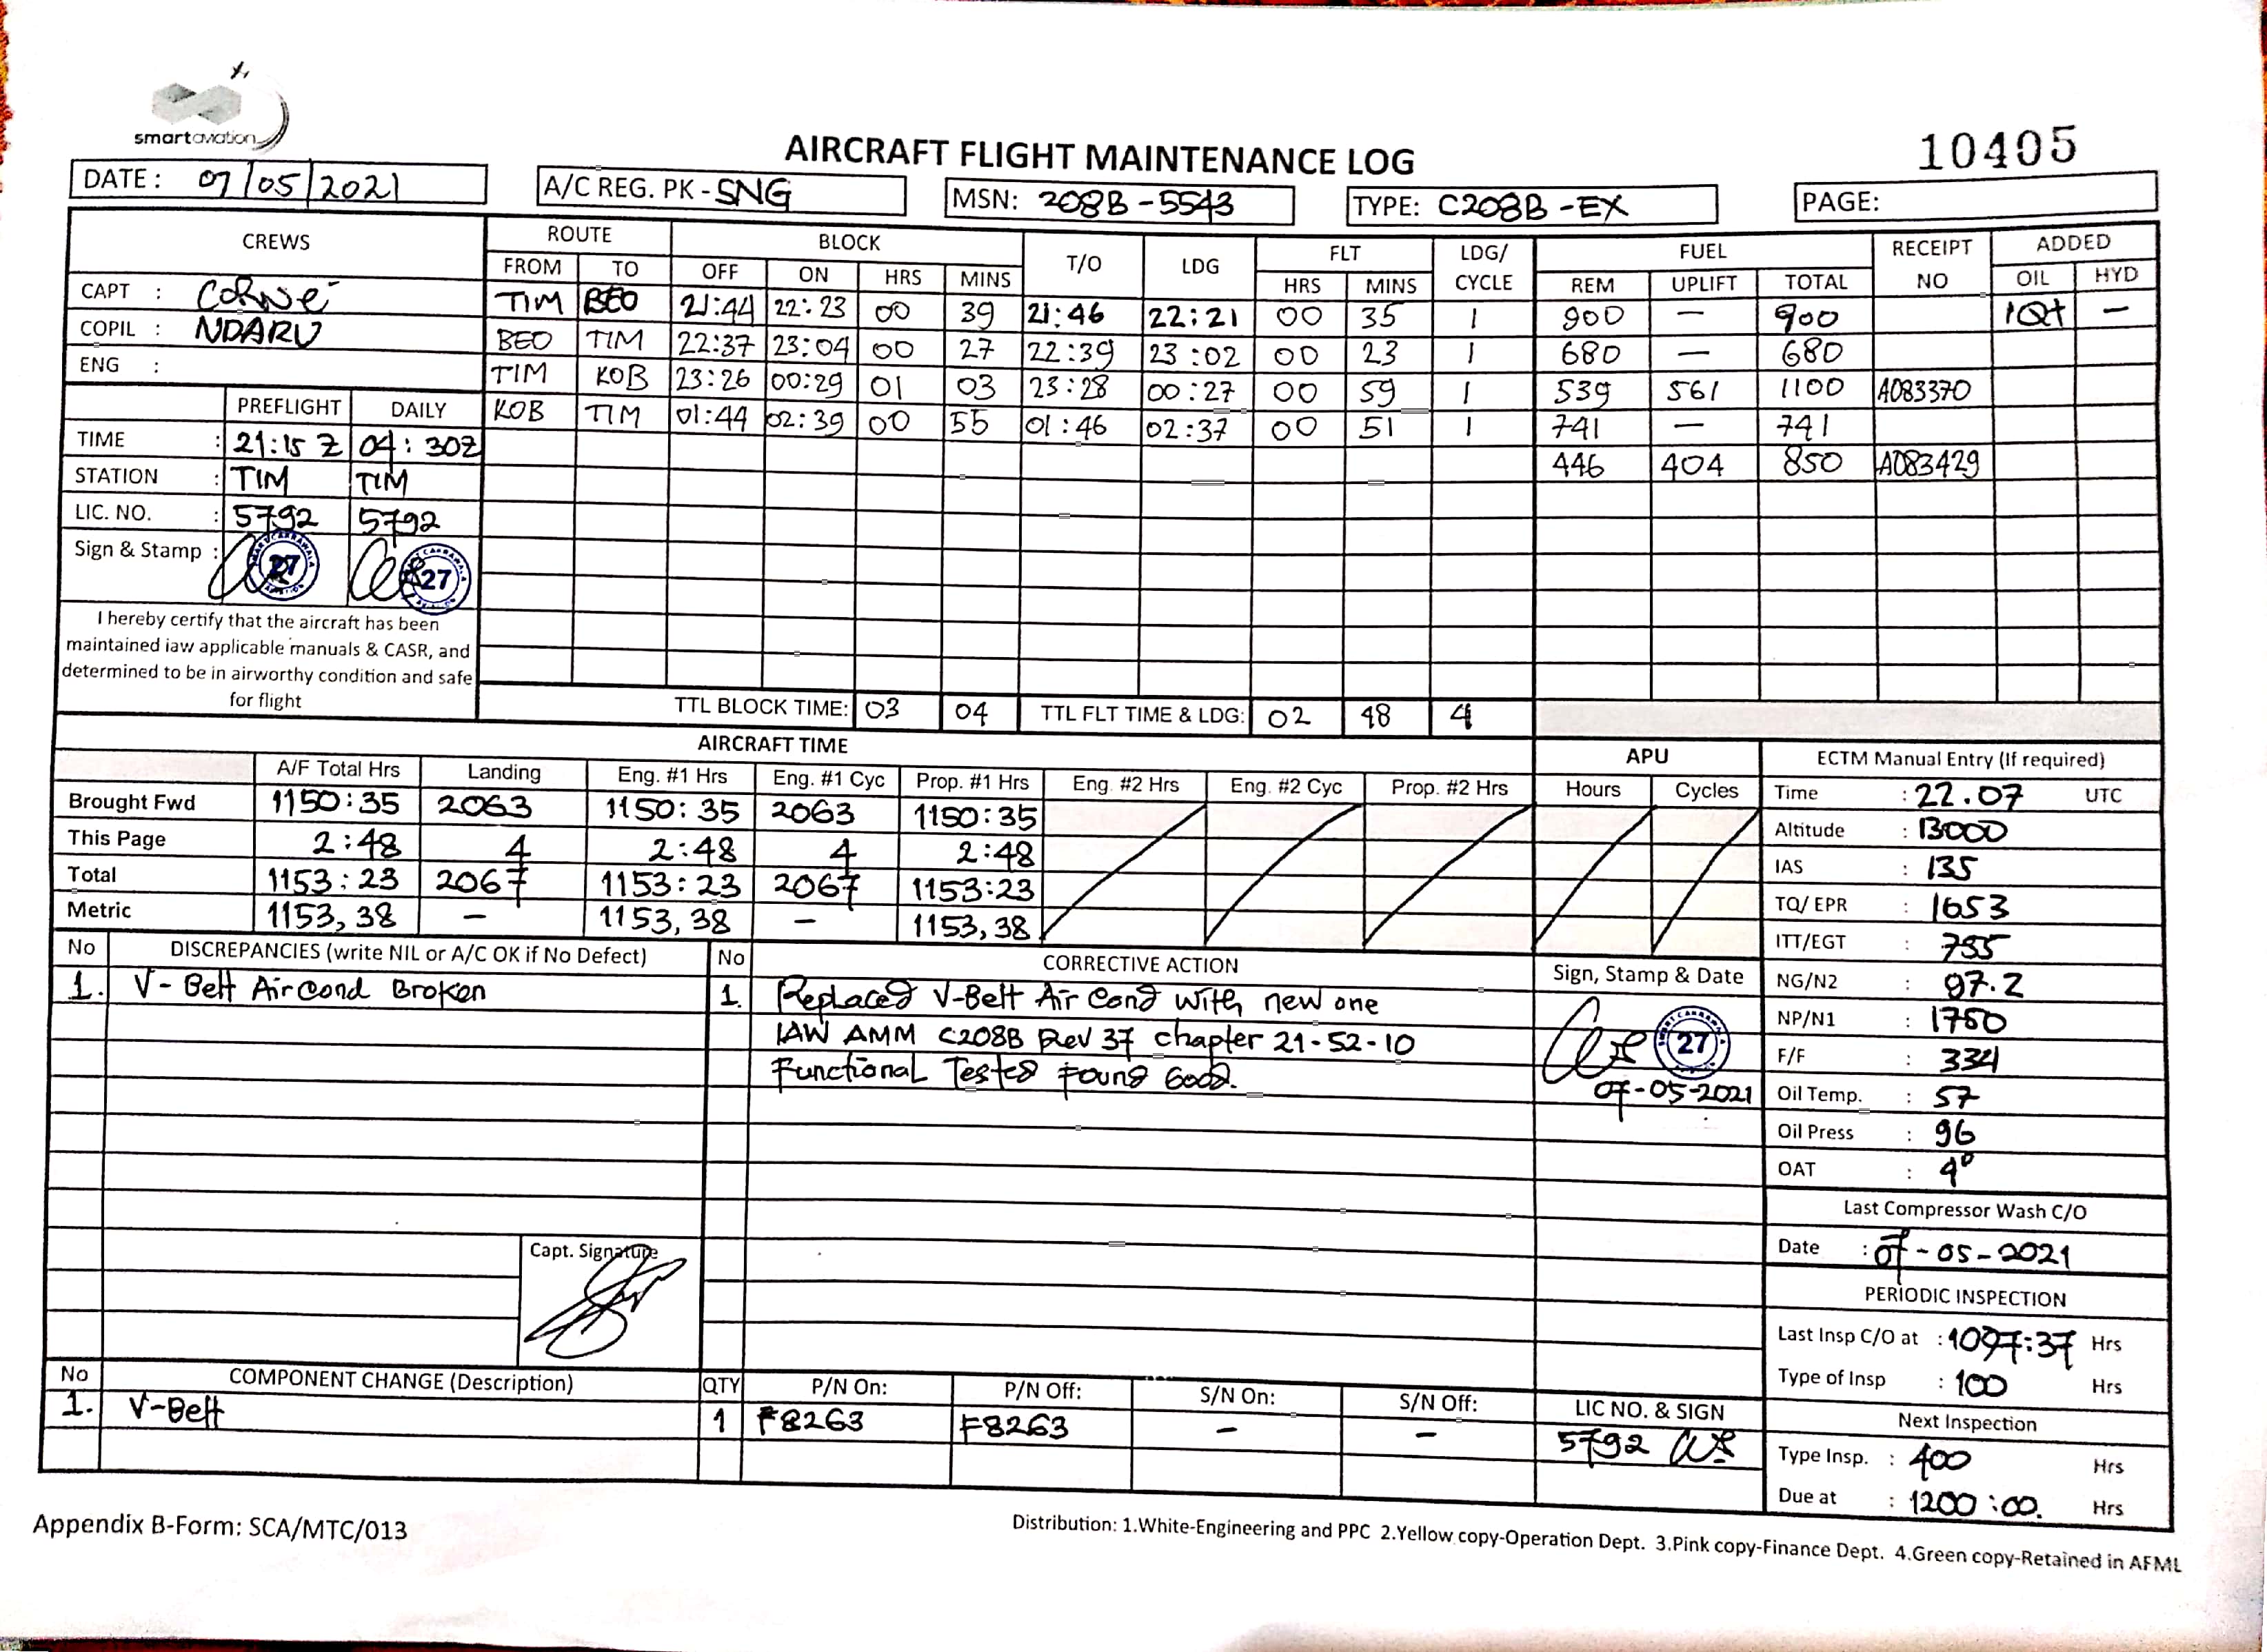 smartaviation
AIRCRAFT FLIGHT MAINTENANCE LOG
10405
DATE: 07/05/2021
A/C REG. PK - SNG
MSN: 208B-5543
TYPE: C208B-EX
PAGE:
CREWS ROUTE BLOCK T/O LDG FLT LDG/ CYCLE FUEL RECEIPT NO ADDED
FROM TO OFF ON HRS MINS HRS MINS REM UPLIFT TOTAL OIL HYD
CAPT : CORNÉ
COPIL : NDARU
ENG :
TIM BEO 21:44 22:23 00 39 21:46 22:21 00 35 1 900 — 900 1Qt —
BEO TIM 22:37 23:04 00 27 22:39 23:02 00 23 1 680 — 680
TIM KOB 23:26 00:29 01 03 23:28 00:27 00 59 1 539 561 1100 A083370
KOB TIM 01:44 02:39 00 55 01:46 02:37 00 51 1 741 — 741
446 404 850 A083429
PREFLIGHT DAILY
TIME : 21:15 Z 04:30Z
STATION : TIM TIM
LIC. NO. : 5792 5792
Sign & Stamp : 27 27
I hereby certify that the aircraft has been
maintained iaw applicable manuals & CASR, and
determined to be in airworthy condition and safe
for flight
TTL BLOCK TIME: 03 04 TTL FLT TIME & LDG: 02 48 4
AIRCRAFT TIME APU
A/F Total Hrs Landing Eng. #1 Hrs Eng. #1 Cyc Prop. #1 Hrs Eng. #2 Hrs Eng. #2 Cyc Prop. #2 Hrs Hours Cycles
Brought Fwd 1150:35 2063 1150:35 2063 1150:35
This Page 2:48 4 2:48 4 2:48
Total 1153:23 2067 1153:23 2067 1153:23
Metric 1153,38 — 1153,38 — 1153,38
ECTM Manual Entry (If required)
Time : 22.07 UTC
Altitude : 13000
IAS : 135
TQ/ EPR : 1653
ITT/EGT : 755
NG/N2 : 97.2
NP/N1 : 1750
F/F : 334
Oil Temp. : 57
Oil Press : 96
OAT : 4°
Last Compressor Wash C/O
Date : 07-05-2021
PERIODIC INSPECTION
Last Insp C/O at : 1097:37 Hrs
Type of Insp : 100 Hrs
Next Inspection
Type Insp. : 400 Hrs
Due at : 1200:00. Hrs
No DISCREPANCIES (write NIL or A/C OK if No Defect)
1. V-Belt Aircond Broken
Capt. Signature
No CORRECTIVE ACTION Sign, Stamp & Date
1. Replaced V-Belt Air Cond with new one
IAW AMM C208B Rev 37 chapter 21-52-10
Functional Tested Found Good.
27
07-05-2021
No COMPONENT CHANGE (Description) QTY P/N On: P/N Off: S/N On: S/N Off: LIC NO. & SIGN
1. V-Belt 1 F8263 F8263 — — 5792
Appendix B-Form: SCA/MTC/013
Distribution: 1.White-Engineering and PPC 2.Yellow copy-Operation Dept. 3.Pink copy-Finance Dept. 4.Green copy-Retained in AFML